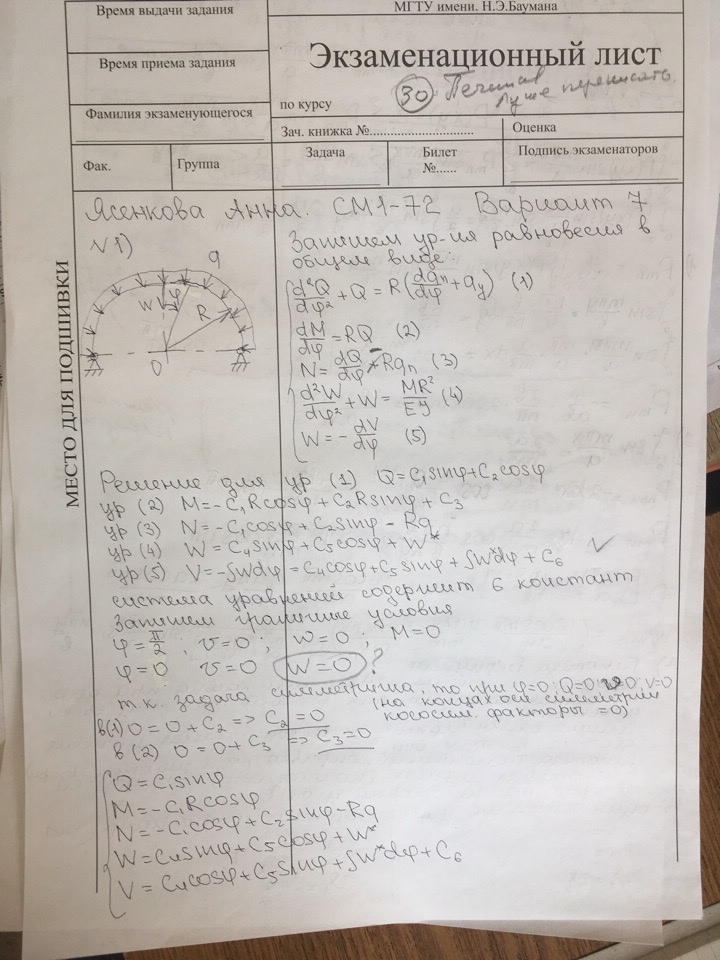 Время выдачи задания
МГТУ имени. Н.Э.Баумана
Время приема задания
Экзаменационный лист
по курсу
30
Лучше переписать.
Фамилия экзаменующегося
Зач. книжка №..............................
Оценка
Фак.
Группа
Задача
Билет
№......
Подпись экзаменаторов
МЕСТО ДЛЯ ПОДШИВКИ
Ясенкова Анна. СМ1-72 Вариант 7
№1)
q
W
φ
R
O
Запишем ур-ия равновесия в
общем виде:
d²Q/dφ² + Q = R(dqn/dφ + qy) (1)
dM/dφ = RQ (2)
N = dQ/dφ - Rqn (3)
d²W/dφ² + W = MR²/EJ (4)
W = - dV/dφ (5)
Решение для ур (1) Q = C₁sinφ + C₂cosφ
ур (2) M = -C₁Rcosφ + C₂Rsinφ + C₃
ур (3) N = -C₁cosφ + C₂sinφ - Rq
ур (4) W = C₄sinφ + C₅cosφ + W*
ур (5) V = -∫Wdφ = C₄cosφ + C₅sinφ + ∫W*dφ + C₆
система уравнений содержит 6 констант
Запишем граничные условия
φ = π/2, v = 0; w = 0; M = 0
φ = 0 v = 0 W = 0 ?
т.к. задача симметрична, то при φ=0: Q=0 V=0
(на концах оси симметрии
кососим. факторы = 0)
в(1) 0 = 0 + C₂ => C₂ = 0
в (2) 0 = 0 + C₃ => C₃ = 0
Q = C₁sinφ
M = -C₁Rcosφ
N = -C₁cosφ + C₂sinφ - Rq
W = C₄sinφ + C₅cosφ + W*
V = C₄cosφ + C₅sinφ + ∫W*dφ + C₆